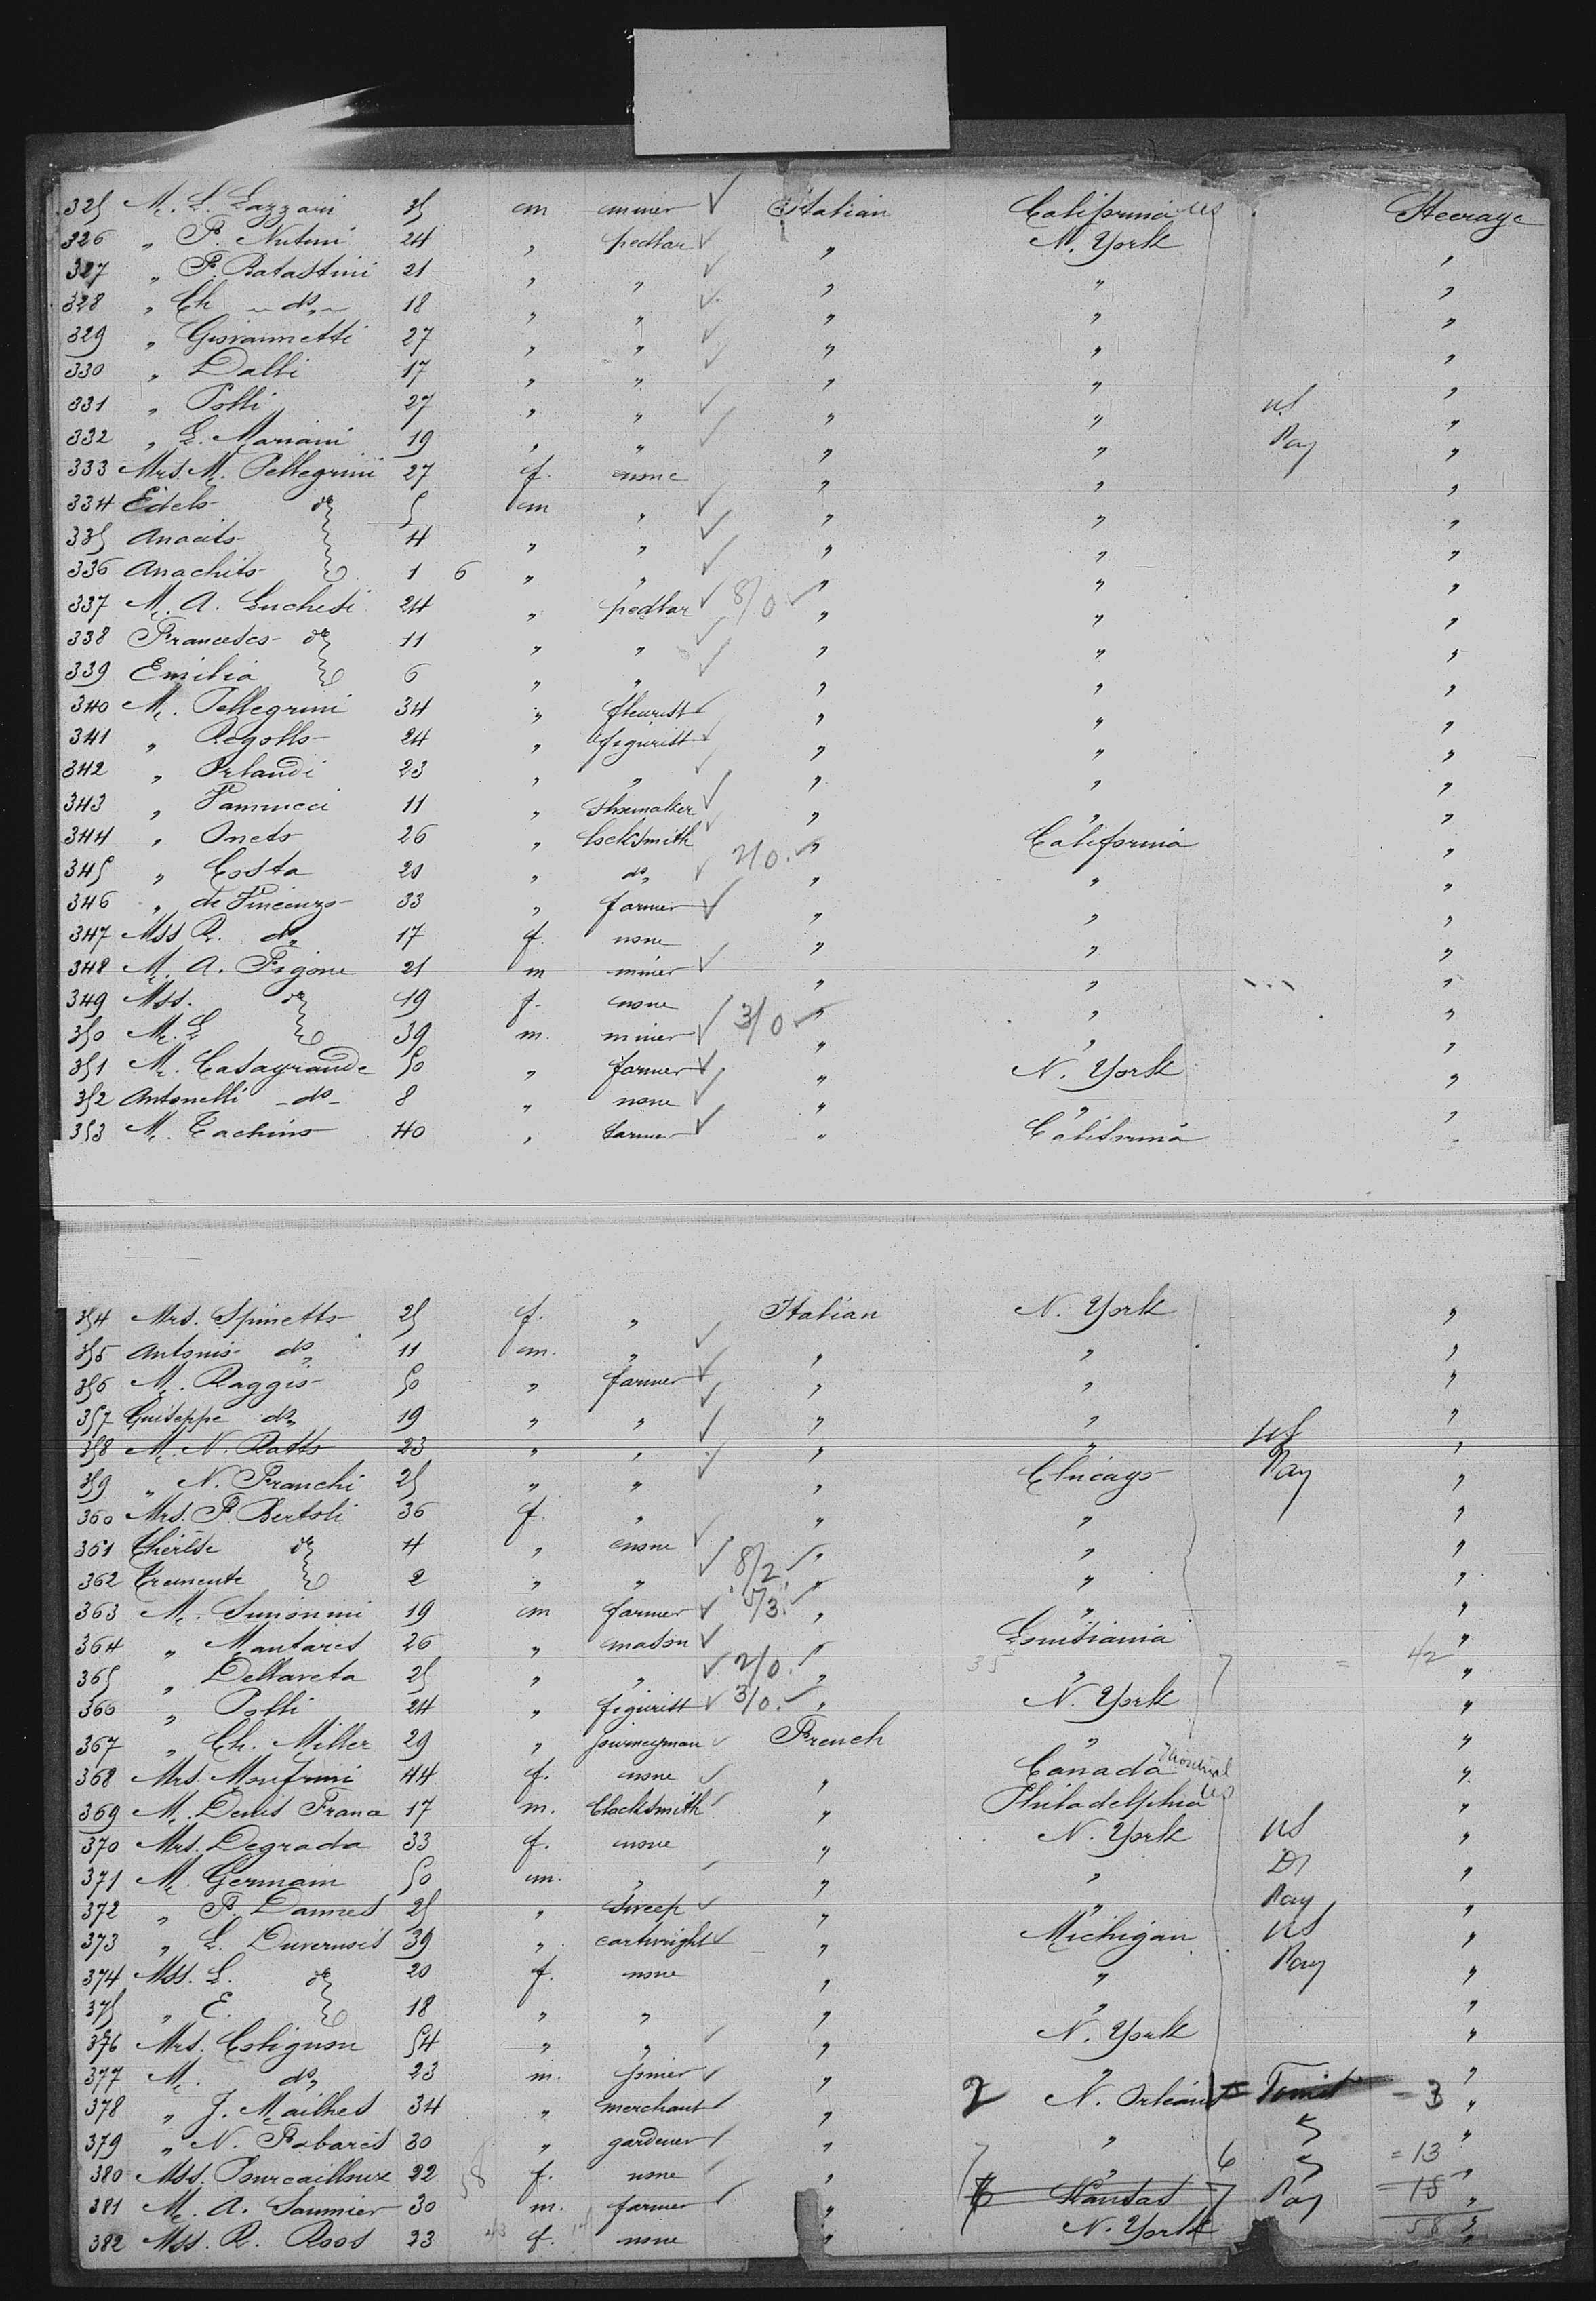 325 Mr. L. Lazzari 25 m miner ✓ Italian California US Steerage
326 " P. Nutini 24 " pedlar ✓ " N. York "
327 " F. Batastini 21 " " ✓ " " "
328 " Ch – do – 18 " " ✓ " " "
329 " Giovannetti 27 " " ✓ " " "
330 " Dalli 17 " " ✓ " " "
331 " Polli 27 " " ✓ " " US "
332 " L. Mariani 19 " " ✓ " " Pay "
333 Mrs. M. Pellegrini 27 f. none " " "
334 Edelo do 5 m " ✓ " " "
335 Anacito 4 " " ✓ " " "
336 Anachito 1 6 " " ✓ " " "
337 Mr. A. Luchesi 24 " pedlar ✓ 8/0 ✓ " " "
338 Francesco do 11 " " ✓ " " "
339 Emilia 6 " " ✓ " " "
340 Mr. Pellegrini 34 " fleurist ✓ " " "
341 " Regollo 24 " figurist ✓ " " "
342 " Orlandi 23 " " ✓ " " "
343 " Vannucci 11 " Shoemaker ✓ " " "
344 " Oneto 26 " locksmith ✓ " California "
345 " Costa 20 " do ✓ 2/0. ✓ " " "
346 " de Vincenzo 33 " farmer ✓ " " "
347 Mss R. do 17 f. none " " "
348 Mr. A. Figone 21 m miner ✓ " " "
349 Mss. do 19 f. none " " "
350 Mr. L 39 m. miner ✓ 3/0 ✓ " " "
351 Mr. Casagrande 50 " farmer ✓ " N. York "
352 Antonelli – do – 8 " none ✓ " " "
353 Mr. Cachino 40 " farmer ✓ " California "
354 Mrs. Spinetto 25 f. " Italian N. York "
355 Antonio do 11 m. " ✓ " " "
356 Mr. Raggio 50 " farmer ✓ " " "
357 Guiseppe do 19 " " ✓ " " "
358 Mr. N. Ratto 23 " " ✓ " " US "
359 " N. Franchi 25 " " ✓ " Chicago Pay "
360 Mrs. P. Bertoli 36 f. " " " "
361 Therese do 4 " none ✓ " " "
362 Tremente 2 " " ✓ 8/2 ✓ " " "
363 Mr. Simonini 19 m farmer ✓ 5/3 ✓ " " "
364 " Mantares 26 " mason ✓ " Louisiania "
365 " Dellareta 25 " " ✓ 2/0. ✓ " 35 " 7 = 42 "
366 " Polli 24 " figurist ✓ 3/0. ✓ " N. York "
367 " Ch. Miller 29 " journeyman ✓ French " "
368 Mrs. Monfrini 44 f. none ✓ " Canada Montreal "
369 Mr. Denis Franca 17 m. blacksmith ✓ " Philadelphia US "
370 Mrs. Degrada 33 f. none " N. York US "
371 Mr. Germain 50 m. " ✓ " " "
372 " P. Dannes 25 " Sweep ✓ " " Pay "
373 " L. Duvernois 39 " cartwright ✓ " Michigan US "
374 Mss. L. do 20 f. none " " Pay "
375 " E. 18 " " " " "
376 Mrs. Colignon 54 " " ✓ " N. York "
377 Mr. do 23 m. joiner ✓ " " "
378 " J. Mailhes 34 " merchant ✓ " 2 N. Orleans – 3 "
379 " N. Pabares 30 " gardener ✓ " " "
380 Mss. Pourcailloux 22 58 f. none ✓ " 7 " 6 = 13 "
381 Mr. A. Saunier 30 m. farmer ✓ " Kansas 7 Pay 18 "
382 Mss. R. Roos 23 f. none " N. York 58 "